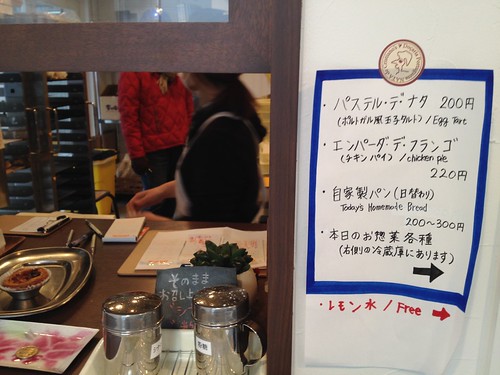 ・パステル・デ・ナタ 200円
(ポルトガル風玉子タルト)/Egg Tart
・エンパーダ・デ・フランゴ
(チキンパイ)/chicken pie
220円
・自家製パン(日替わり)
Today's Homemade Bread
200〜300円
・本日のお惣菜各種
(右側の冷蔵庫にあります)
→
・レモン水/Free →
そのまま
お召し